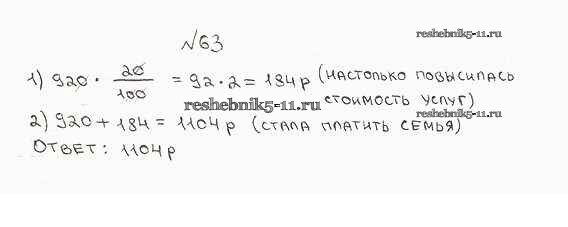 №63
reshebnik5-11.ru
1) 920 · 20/100 = 92 · 2 = 184 р (НАСТОЛЬКО ПОВЫСИЛАСЬ
reshebnik5-11.ru СТОИМОСТЬ УСЛУГ)
2) 920 + 184 = 1104 р (СТАЛА ПЛАТИТЬ СЕМЬЯ)
reshebnik5-11.ru
ОТВЕТ: 1104 р